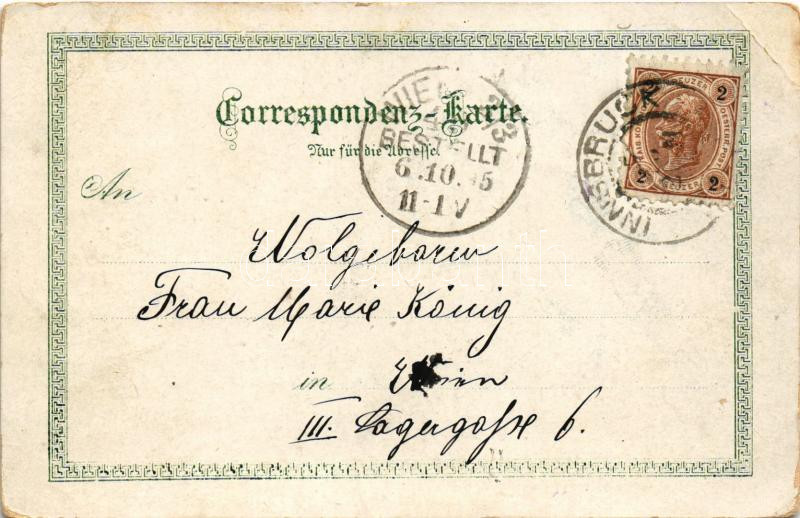 Correspondenz-Karte.
Nur für die Adresse
An
WIEN
BESTELLT
6.10.95
11-1V
INNSBRUCK
2
2
2
KREUZER
OESTERR. POST
KREUZER
Wolgeboren
Frau Marie König
in Wien
III. Lagergasse 6.